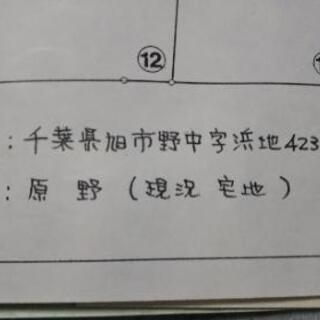 ⑫
:千葉県旭市野中字浜地423
:原 野 (現況 宅地)